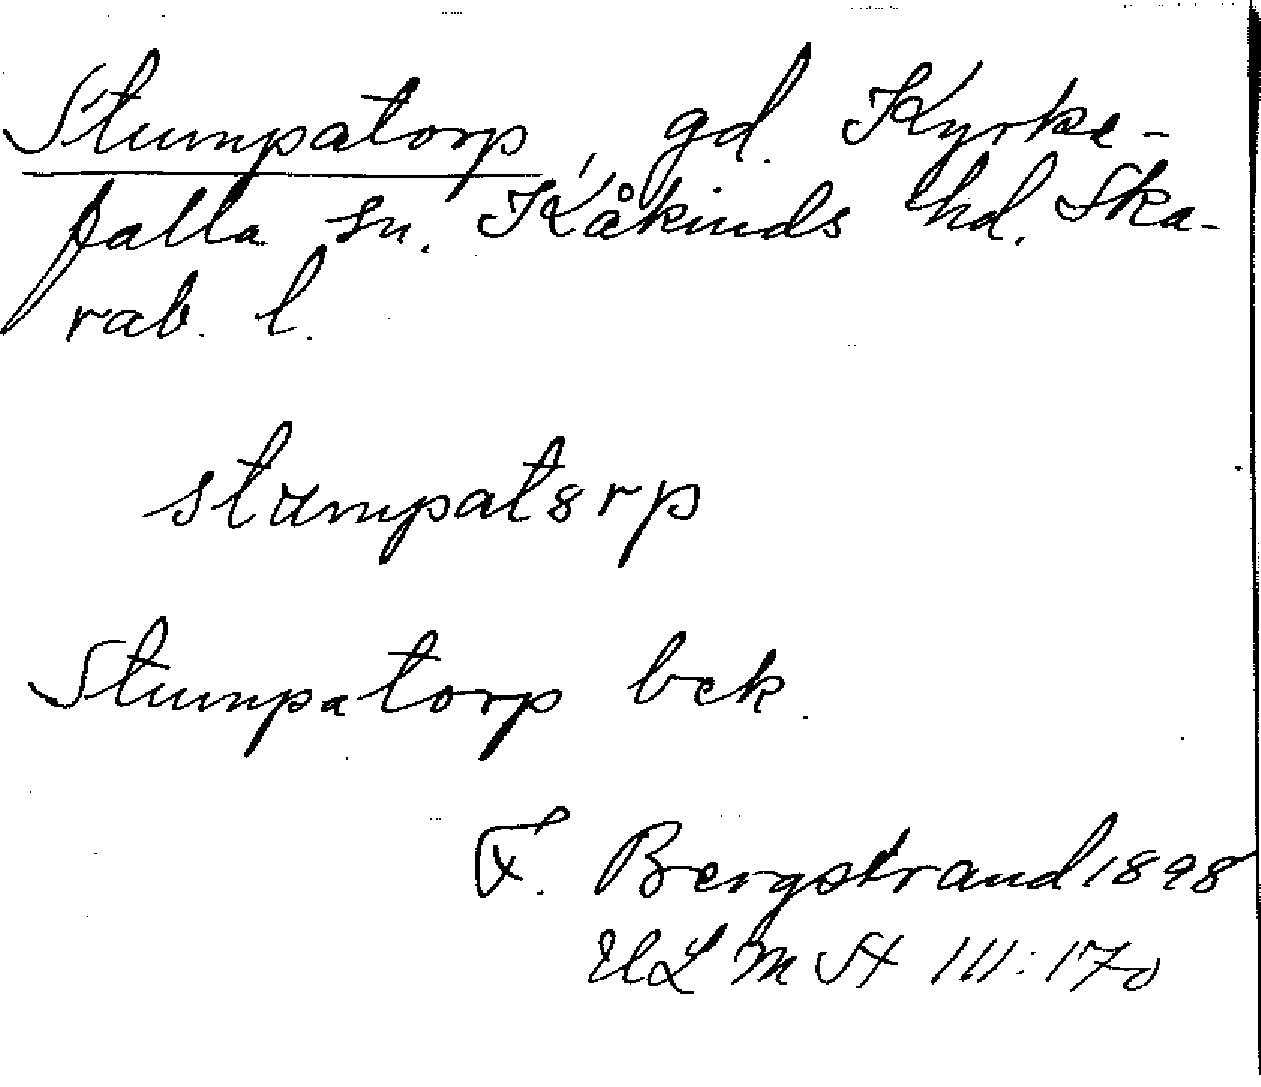 Stumpatorp, gd. Kyrke-
falla sn. Kåkinds hd. Ska-
rab. l.
stumpat8rp
Stumpatorp bek.
F. Bergstrand 1898
III: 170